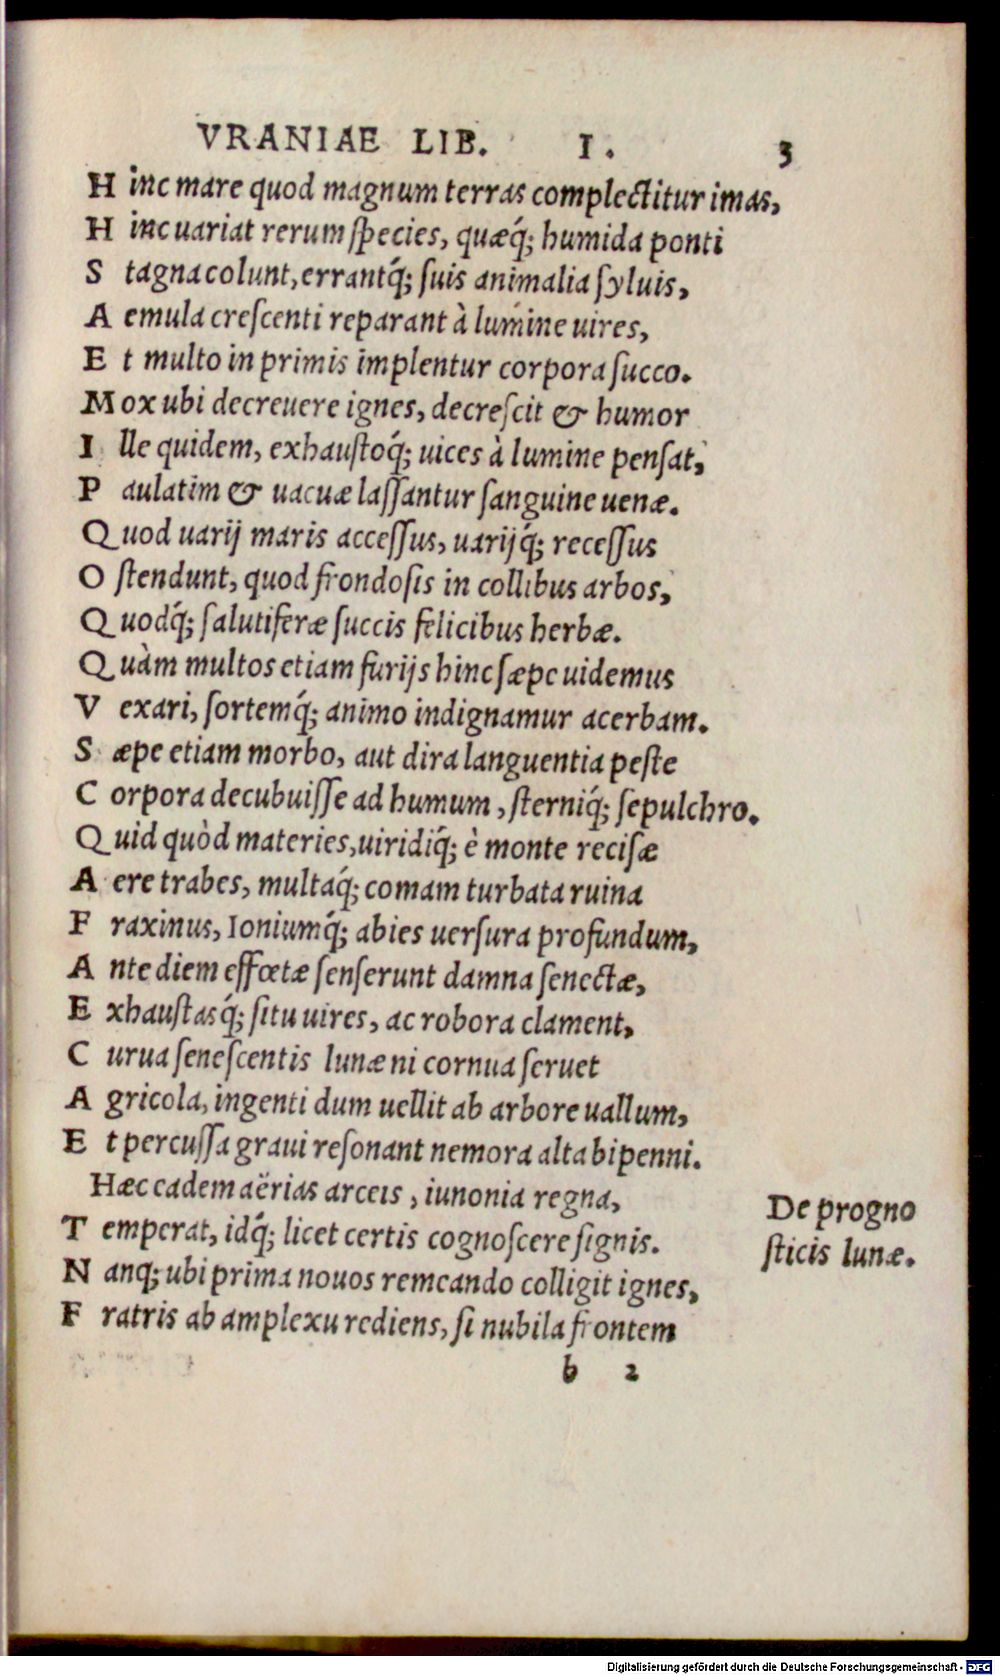 VRANIAE LIB. I. 3
H inc mare quod magnum terras complectitur imas,
H inc uariat rerum species, quæq́; humida ponti
S tagna colunt, errantq́; suis animalia syluis,
A emula crescenti reparant à lumine uires,
E t multo in primis implentur corpora succo.
M ox ubi decreuere ignes, decrescit & humor
I lle quidem, exhaustoq́; uices à lumine pensat,
P aulatim & uacuæ lassantur sanguine uenæ.
Q uod uarij maris accessus, uarijq́; recessus
O stendunt, quod frondosis in collibus arbos,
Q uodq́; salutiferæ succis felicibus herbæ.
Q uàm multos etiam furijs hinc sæpe uidemus
V exari, sortemq́; animo indignamur acerbam.
S æpe etiam morbo, aut dira languentia peste
C orpora decubuisse ad humum, sterniq́; sepulchro.
Q uid quòd materies, uiridiq́; è monte recisæ
A ere trabes, multaq́; comam turbata ruina
F raxinus, Ioniumq́; abies uersura profundum,
A nte diem effœtæ senserunt damna senectæ,
E xhaustasq́; situ uires, ac robora clament,
C urua senescentis lunæ ni cornua seruet
A gricola, ingenti dum uellit ab arbore uallum,
E t percussa graui resonant nemora alta bipenni.
Hæc eadem aërias arceis, iunonia regna,
T emperat, idq́; licet certis cognoscere signis.
N anq; ubi prima nouos remeando colligit ignes,
F ratris ab amplexu rediens, si nubila frontem
De progno
sticis lunæ.
b 2
Digitalisierung gefördert durch die Deutsche Forschungsgemeinschaft - DFG